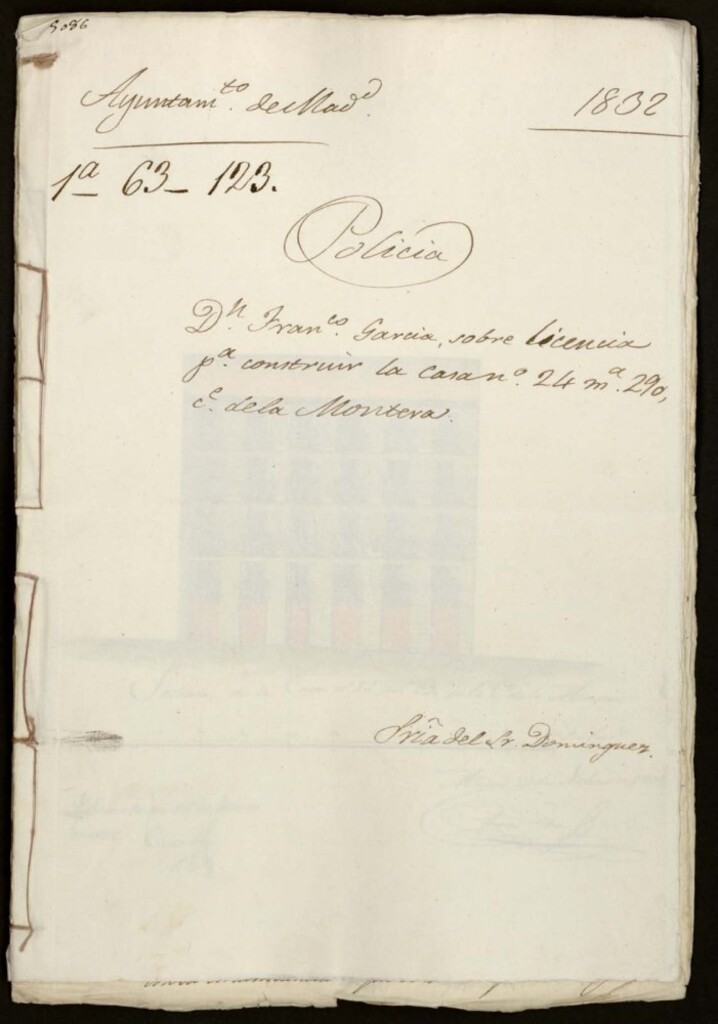 5086
Ayuntam.to de Mad.d
1832
1ª 63- 123.
Policia
D.n Fran.co Garcia, sobre licencia
p.a construir la casa n.o 24 m.a 290,
c.e de la Montera.
Sria del Sr. Dominguez.